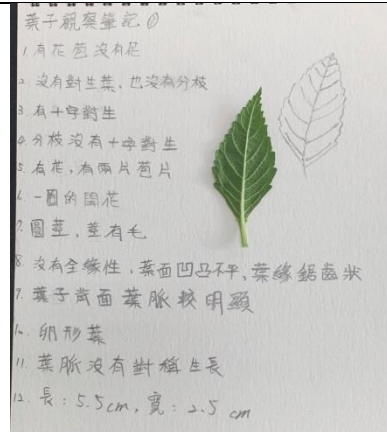 葉子觀察筆記①
1. 有花苞沒有花
2. 沒有對生葉,也沒有分枝
3. 有十字對生
4. 分枝沒有十字對生
5. 有花,有兩片苞片
6. 一圈的開花
7. 圓莖,莖有毛
8. 沒有全緣性,葉面凹凸不平,葉緣鋸齒狀
9. 葉子背面葉脈較明顯
10. 卵形葉
11. 葉脈沒有對稱生長
12. 長:5.5cm,寬:2.5 cm